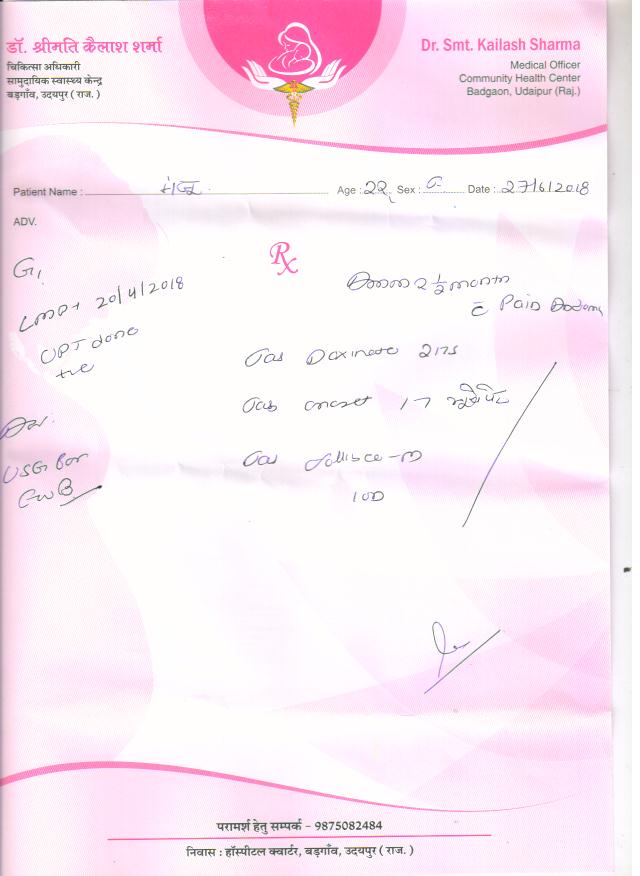 डॉ. श्रीमति कैलाश शर्मा
चिकित्सा अधिकारी
सामुदायिक स्वास्थ्य केन्द्र
बड़गाँव, उदयपुर ( राज. )
Dr. Smt. Kailash Sharma
Medical Officer
Community Health Center
Badgaon, Udaipur (Raj.)
Patient Name : मंजू Age : 22 Sex : Date : 27/6/2018
ADV.
Rx
G1
LMP 20/4/2018
UPT done
+ve
2 1/2 month
c̄ Pain
Doxinate
Adv:
USG for
FWB
Tab
Tab
10D
परामर्श हेतु सम्पर्क - 9875082484
निवास : हॉस्पीटल क्वार्टर, बड़गाँव, उदयपुर ( राज. )